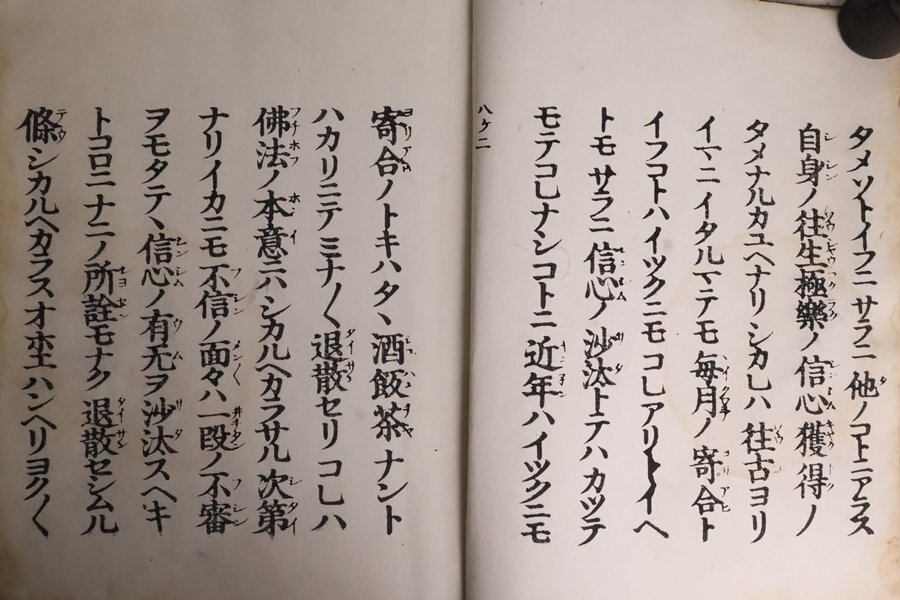 タメソトイフニサラニ他ノコトニアラス
自身ノ往生極樂ノ信心獲得ノ
タメナルカユヘナリシカレハ往古ヨリ
イマニイタルマテモ毎月ノ寄合ト
イフコトハイツクニモコレアリトイヘ
トモサラニ信心ノ沙汰トテハカツテ
モテコレナシコトニ近年ハイツクニモ
八ケ二
寄合ノトキハタヽ酒飯茶ナント
ハカリニテミナ〳〵退散セリコレハ
佛法ノ本意ニハシカルヘカラサル次第
ナリイカニモ不信ノ面々ハ一段ノ不審
ヲモタテヽ信心ノ有无ヲ沙汰スヘキ
トコロニナニノ所詮モナク退散セシムル
條シカルヘカラスオホエハンヘリヨク〳〵